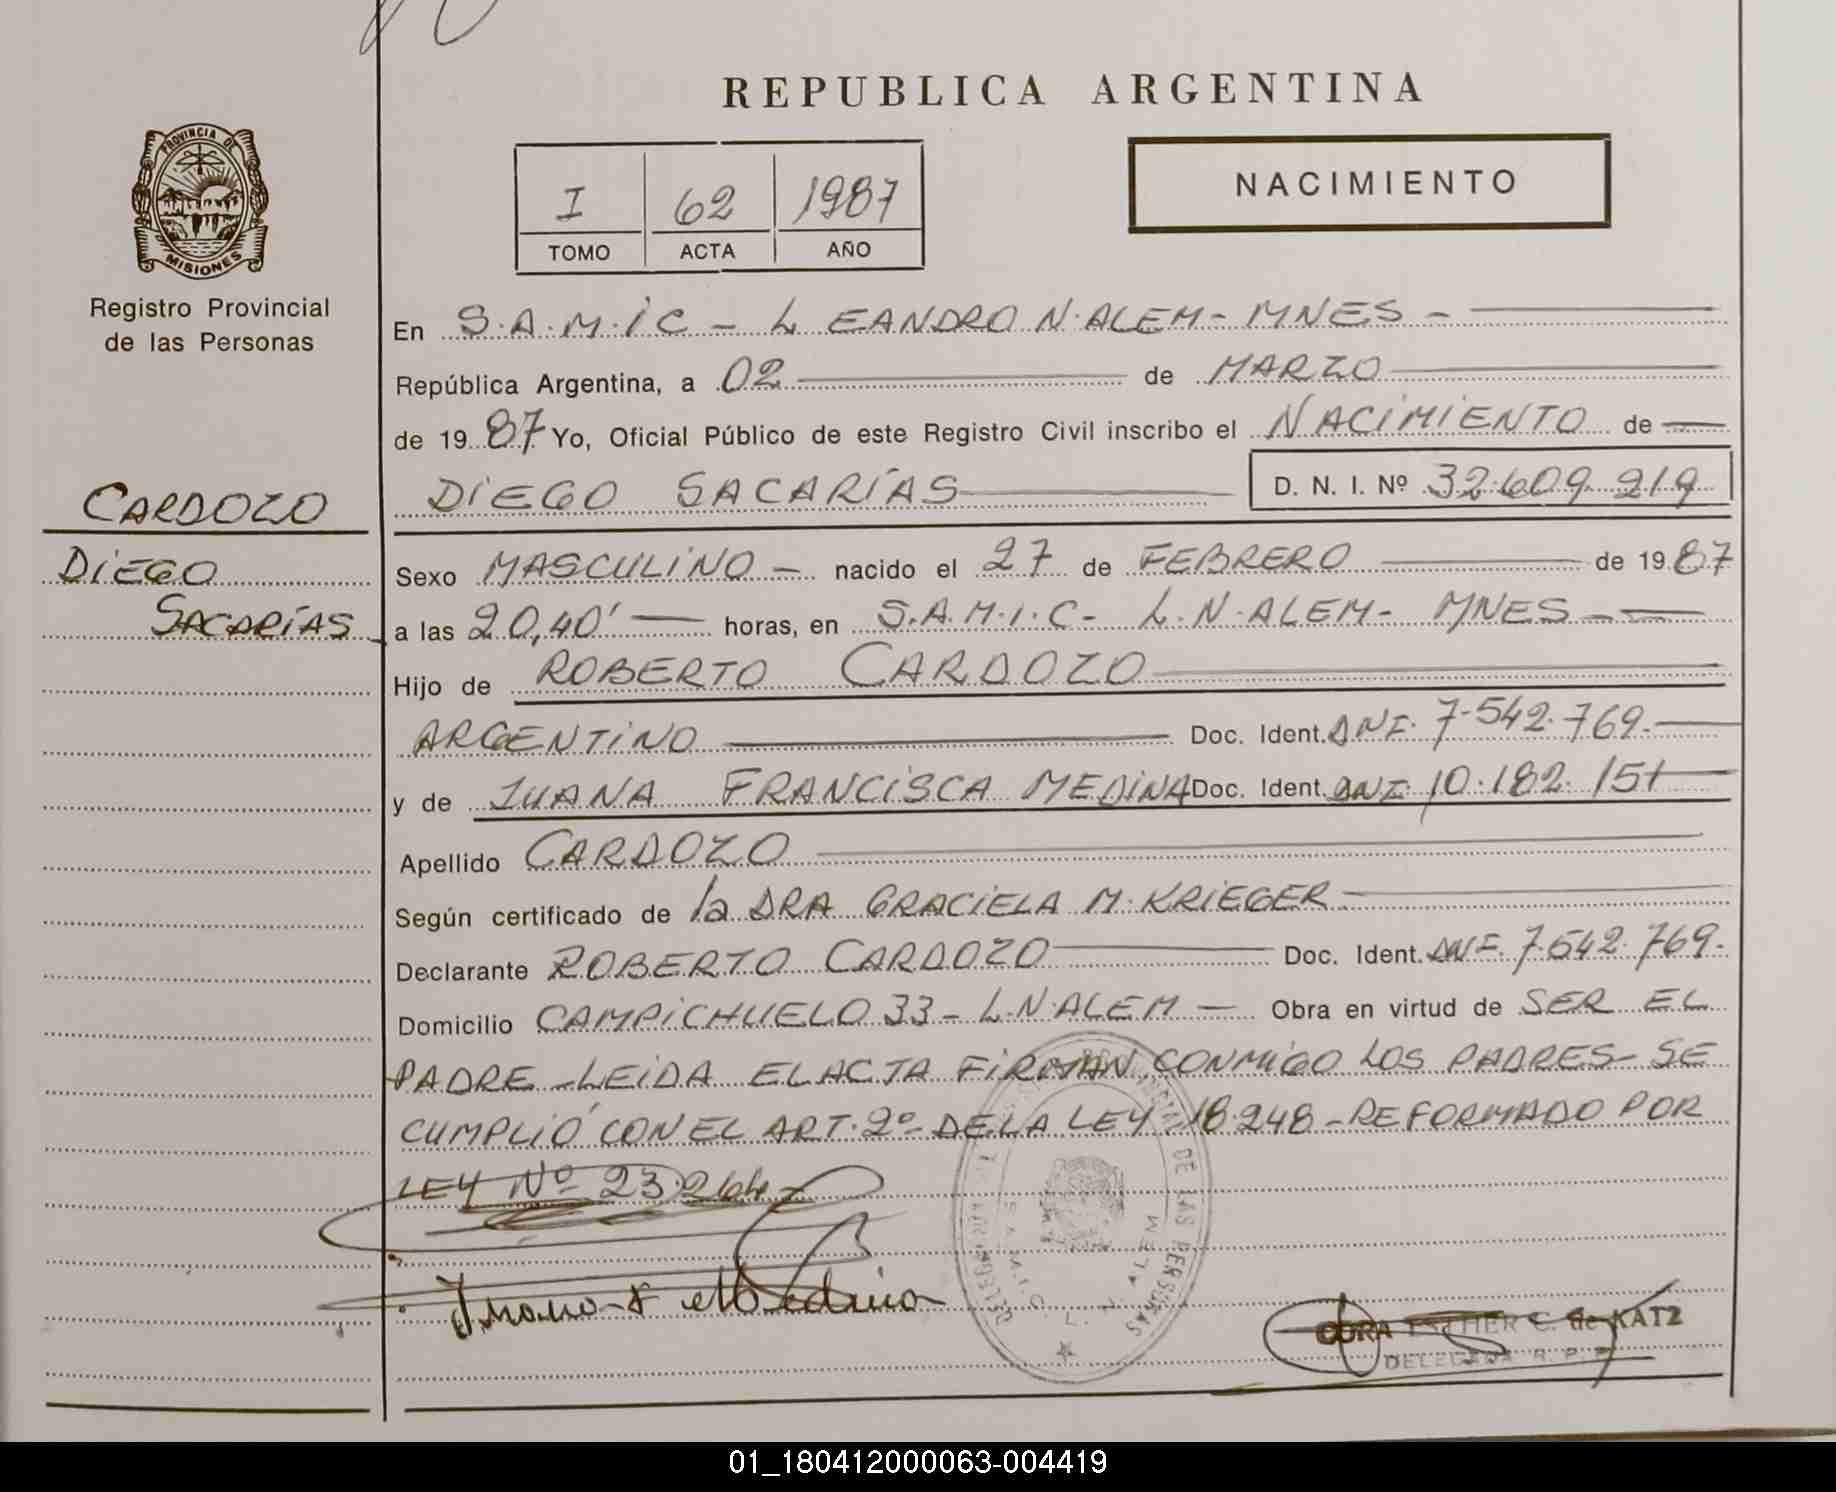 REPUBLICA ARGENTINA
PROVINCIA DE
MISIONES
Registro Provincial
de las Personas
I 62 1987
TOMO ACTA AÑO
NACIMIENTO
En S.A.M.IC - LEANDRO N. ALEM - MNES -
República Argentina, a 02 de MARZO
de 1987 Yo, Oficial Público de este Registro Civil inscribo el NACIMIENTO de
DIEGO SACARÍAS D. N. I. Nº 32.609.219
CARDOZO
DIEGO
SACARÍAS
Sexo MASCULINO - nacido el 27 de FEBRERO de 1987
a las 20,40' horas, en S.A.M.I.C - L.N. ALEM - MNES -
Hijo de ROBERTO CARDOZO
ARGENTINO Doc. Ident. DNI. 7.542.769.
y de JUANA FRANCISCA MEDINA Doc. Ident. DNI. 10.182.151
Apellido CARDOZO
Según certificado de la DRA GRACIELA M. KRIEGER
Declarante ROBERTO CARDOZO Doc. Ident. DNI. 7.542.769.
Domicilio CAMPICHUELO 33 - L.N. ALEM - Obra en virtud de SER EL
PADRE - LEIDA EL ACTA FIRMAN CONMIGO LOS PADRES - SE
CUMPLIÓ CON EL ART. 2º DE LA LEY 18.248 - REFORMADO POR
LEY Nº 23.264 -
DE LAS PERSONAS
S.A.M.I.C. L. N. ALEM
Juana F Medina
ESTHER C. de KATZ
DELEGADA R. P. P.
01_180412000063-004419